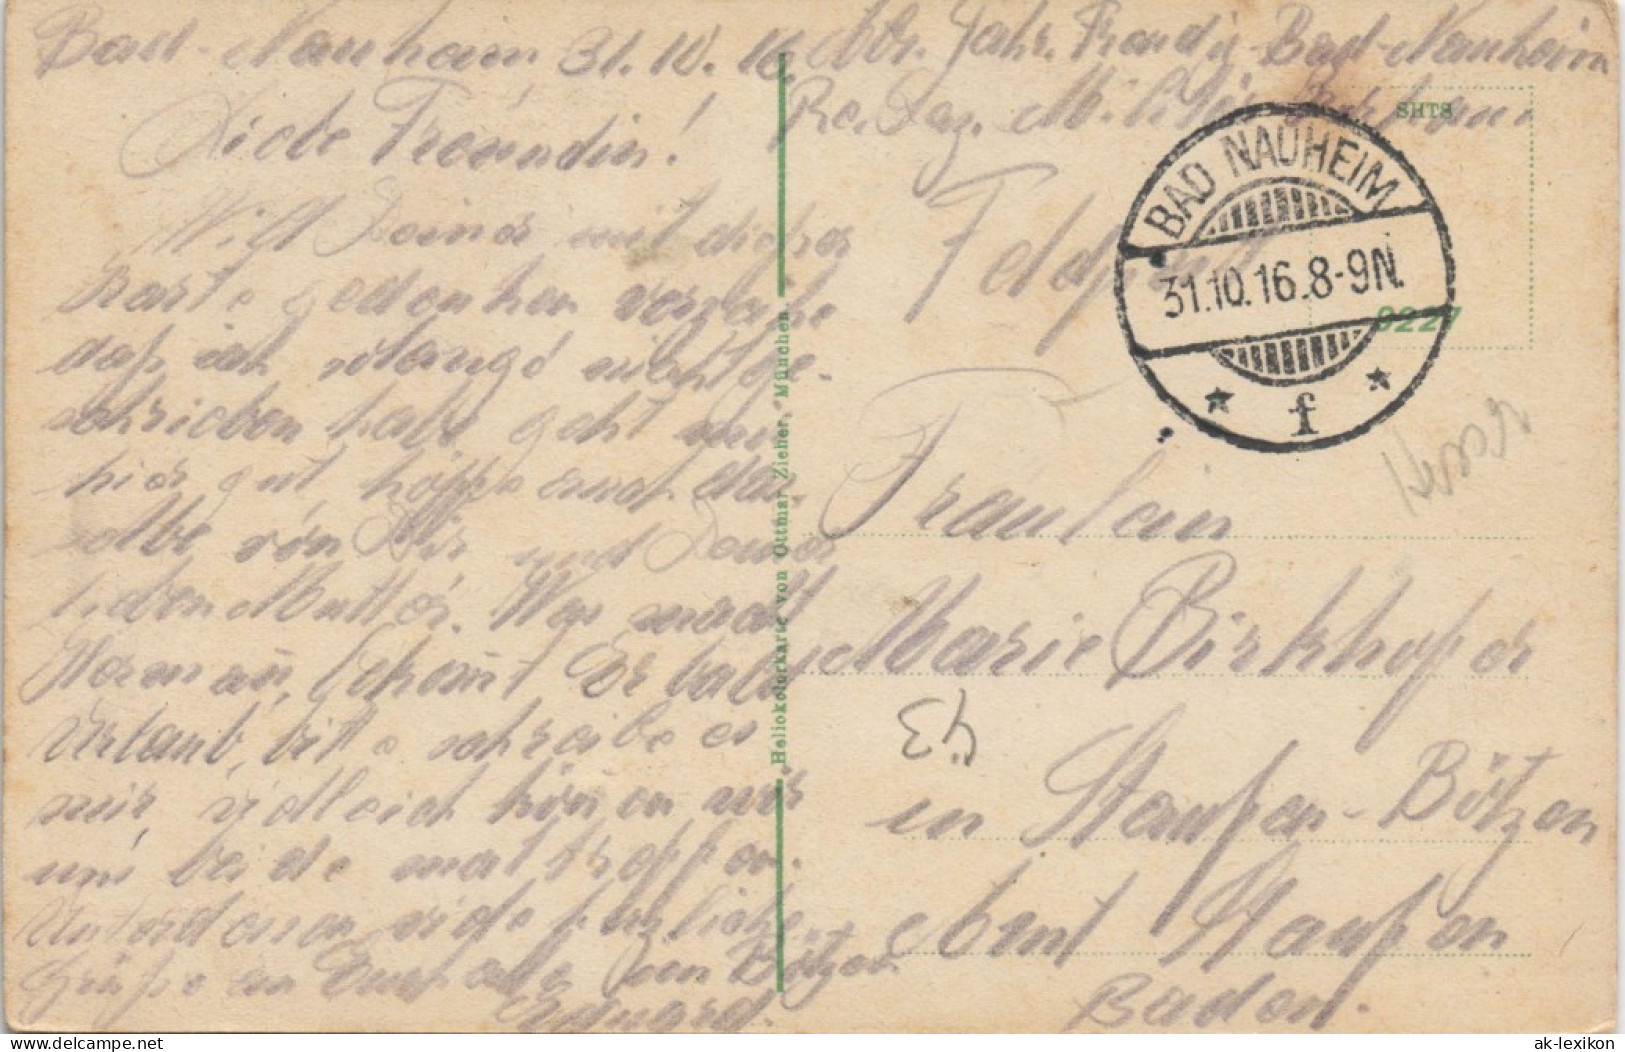 Bad-Nauheim 31.10.16.
Liebe Freundin!
Will Deiner mit dieser
Karte gedenken verzeihe
daß ich solange nicht ge-
schrieben habe, geht mir
hier gut, hoffe auch das-
selbe von Dir und Deiner
lieben Mutter. Was macht
Hermann, bekomt Er bald
Urlaub, bitte schreibe es
mir, vielleich könen wir
uns beide mal treffen.
Unterdessen viele herzliche
Grüße an Euch alle in Bötzen
Eduard.
Abs. Bad-Nauheim
Re. Laz. Militär
SHTS
BAD NAUHEIM
31.10.16.8-9N.
* f *
9227
Feldpost
Fräulein
Marie Birkhofer
in Staufen-Bötzen
Amt Staufen
Baden.
Heliokolorkarte von Ottmar Zieher, München.
ak-lexikon.de
ak-lexikon